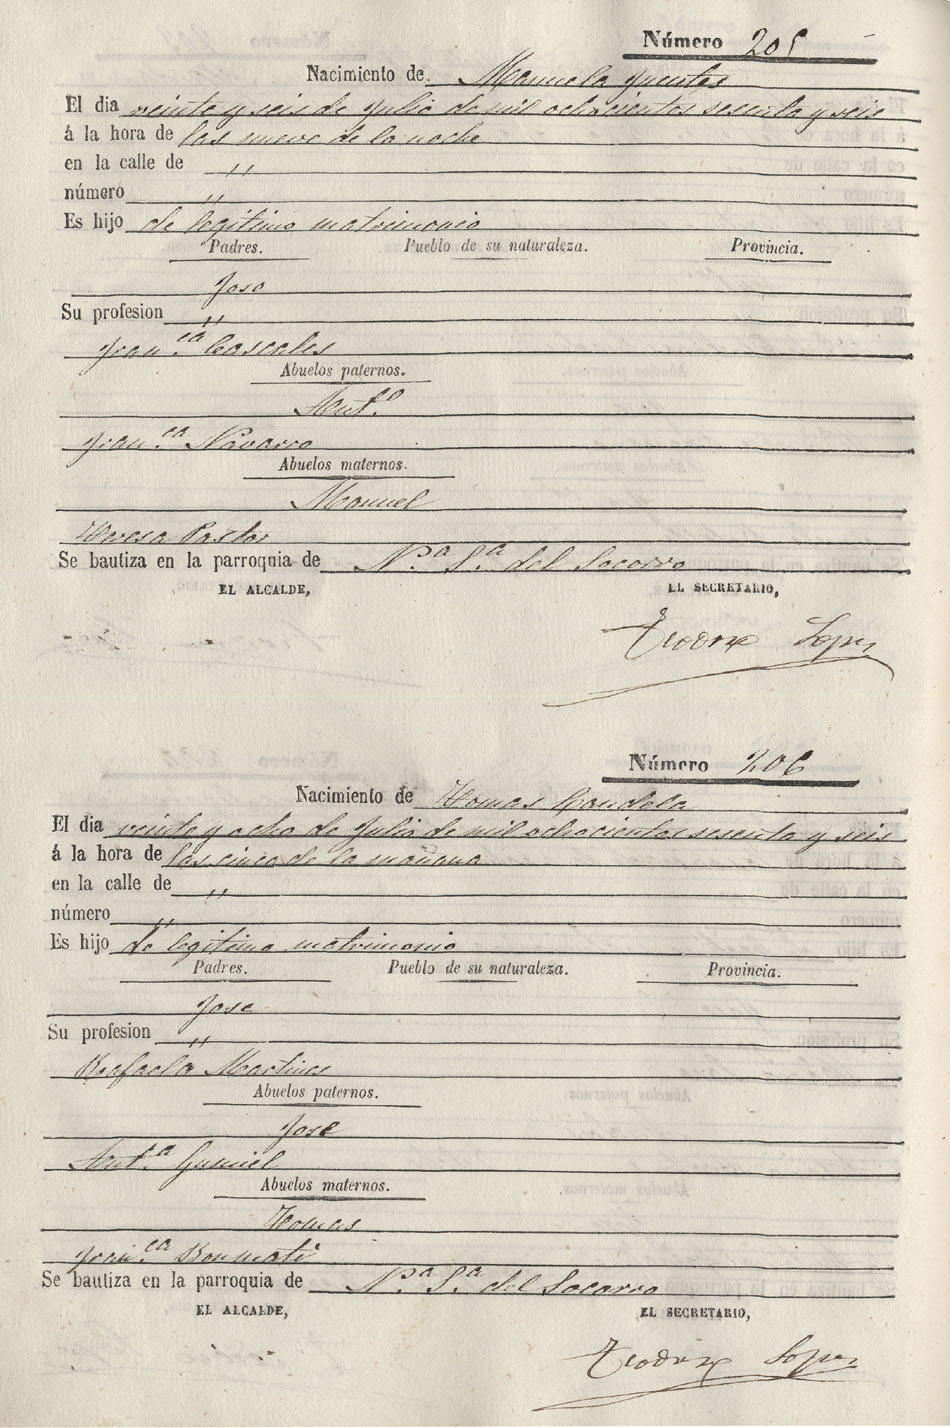 Número 205
Nacimiento de Manuela Fuentes
El dia veinte y seis de Julio de mil ochocientos sesenta y seis
á la hora de las nueve de la noche
en la calle de "
número "
Es hijo de legitimo matrimonio
Padres. Pueblo de su naturaleza. Provincia.
Jose
Su profesion "
Fran.ca Cascales
Abuelos paternos.
Ant.o
Fran.ca Navarro
Abuelos maternos.
Manuel
Teresa Pastor
Se bautiza en la parroquia de N.a S.a del Socorro
EL ALCALDE, EL SECRETARIO,
Teodoro Lopez
Número 206
Nacimiento de Tomas Candela
El dia veinte y ocho de Julio de mil ochocientos sesenta y seis
á la hora de las cinco de la mañana
en la calle de "
número "
Es hijo de legitimo matrimonio
Padres. Pueblo de su naturaleza. Provincia.
Jose
Su profesion "
Rafaela Martinez
Abuelos paternos.
Jose
Ant.a Gumiel
Abuelos maternos.
Tomas
Fran.ca Bonmati
Se bautiza en la parroquia de N.a S.a del Socorro
EL ALCALDE, EL SECRETARIO,
Teodoro Lopez